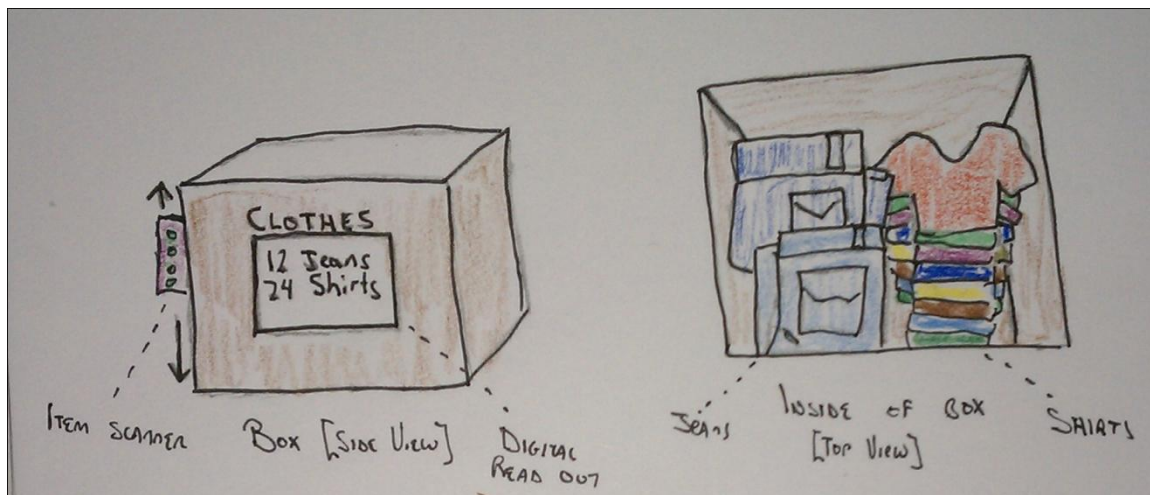 CLOTHES
12 Jeans
24 Shirts
ITEM SCANNER
BOX [SIDE VIEW]
DIGITAL
READ OUT
JEANS
INSIDE OF BOX
[TOP VIEW]
SHIRTS